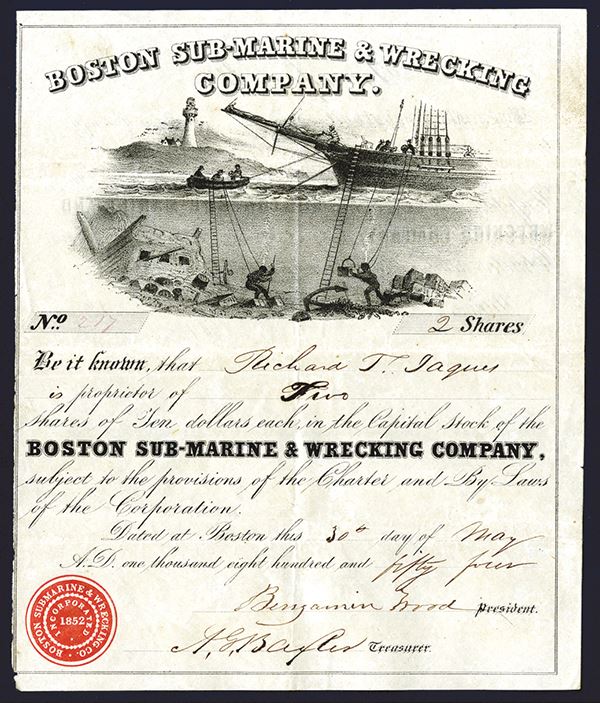 BOSTON SUB-MARINE & WRECKING
COMPANY.
No. 217
2 Shares
Be it known, that Richard T. Jaques
is proprietor of Two
shares of Ten dollars each, in the Capital Stock of the
BOSTON SUB-MARINE & WRECKING COMPANY,
subject to the provisions of the Charter and By-Laws
of the Corporation.
Dated at Boston this 30th day of May
A.D. one thousand eight hundred and fifty four
Benjamin Wood President.
Treasurer.
BOSTON SUBMARINE & WRECKING CO.
INCORPORATED
1852